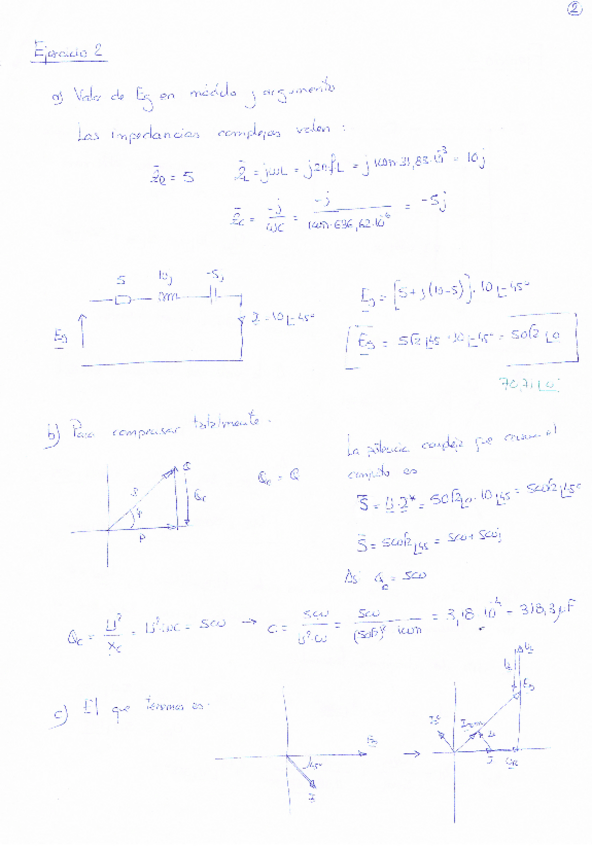 2
Ejercicio 2
a) Valor de Eg en módulo y argumento
Las impedancias complejas valen :
Z̄R = 5 Z̄L = jωL = j2πfL = j 100π·31,83·10⁻³ = 10j
Z̄c = -j/ωC = -j/100π·636,62·10⁻⁶ = -5j
5 10j -5j
Eg
I = 10∟-45°
Eg = [5+j(10-5)]·10∟-45°
Eg = 5√2∟45·10∟-45° = 50√2∟0
70,71∟0°
b) Para compensar totalmente.
Qc = Q
S Q Qc
φ
P
La potencia compleja que consume el
conjunto es
S̄ = U·I* = 50√2∟0·10∟45 = 500√2∟45°
S̄ = 500√2∟45 = 500+500j
Así Qc = 500
Qc = U²/Xc = U²ωC = 500 → C = 500/U²·ω = 500/(50√2)²·100π = 3,18·10⁻⁴ = 318,3μF
c) El que tenemos es:
45°
Eg
I
→
UL
Eg
I
UR